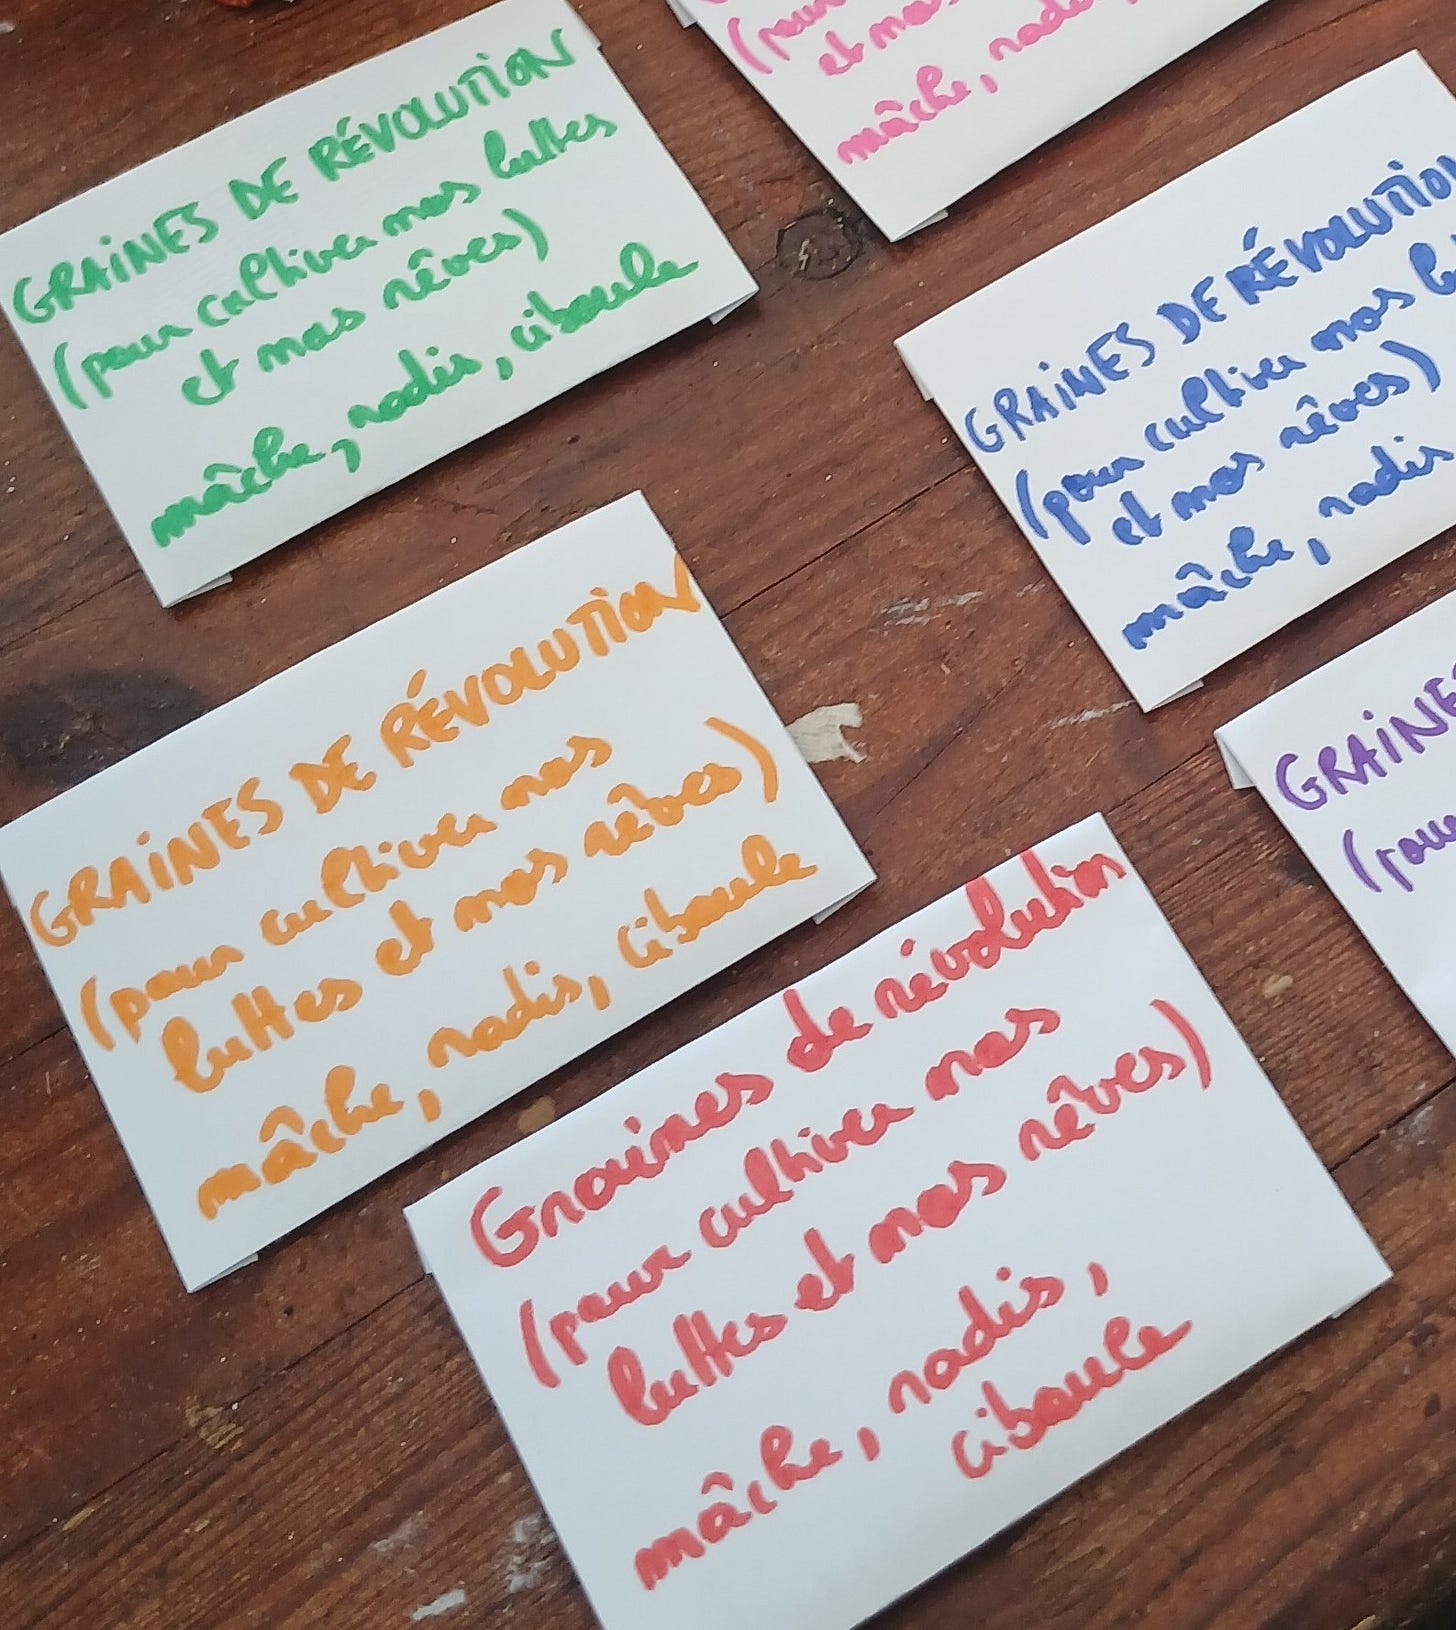 GRAINES DE RÉVOLUTION
(pour cultiver nos luttes
et nos rêves)
mâche, radis, ciboule
(pour
et nos
mâche, radis,
GRAINES DE RÉVOLUTION
(pour cultiver nos lu
et nos rêves)
mâche, radis
GRAINES DE RÉVOLUTION
(pour cultiver nos
luttes et nos rêves)
mâche, radis, ciboule
GRAINES
(pour
Graines de révolution
(pour cultiver nos
luttes et nos rêves)
mâche, radis,
ciboule